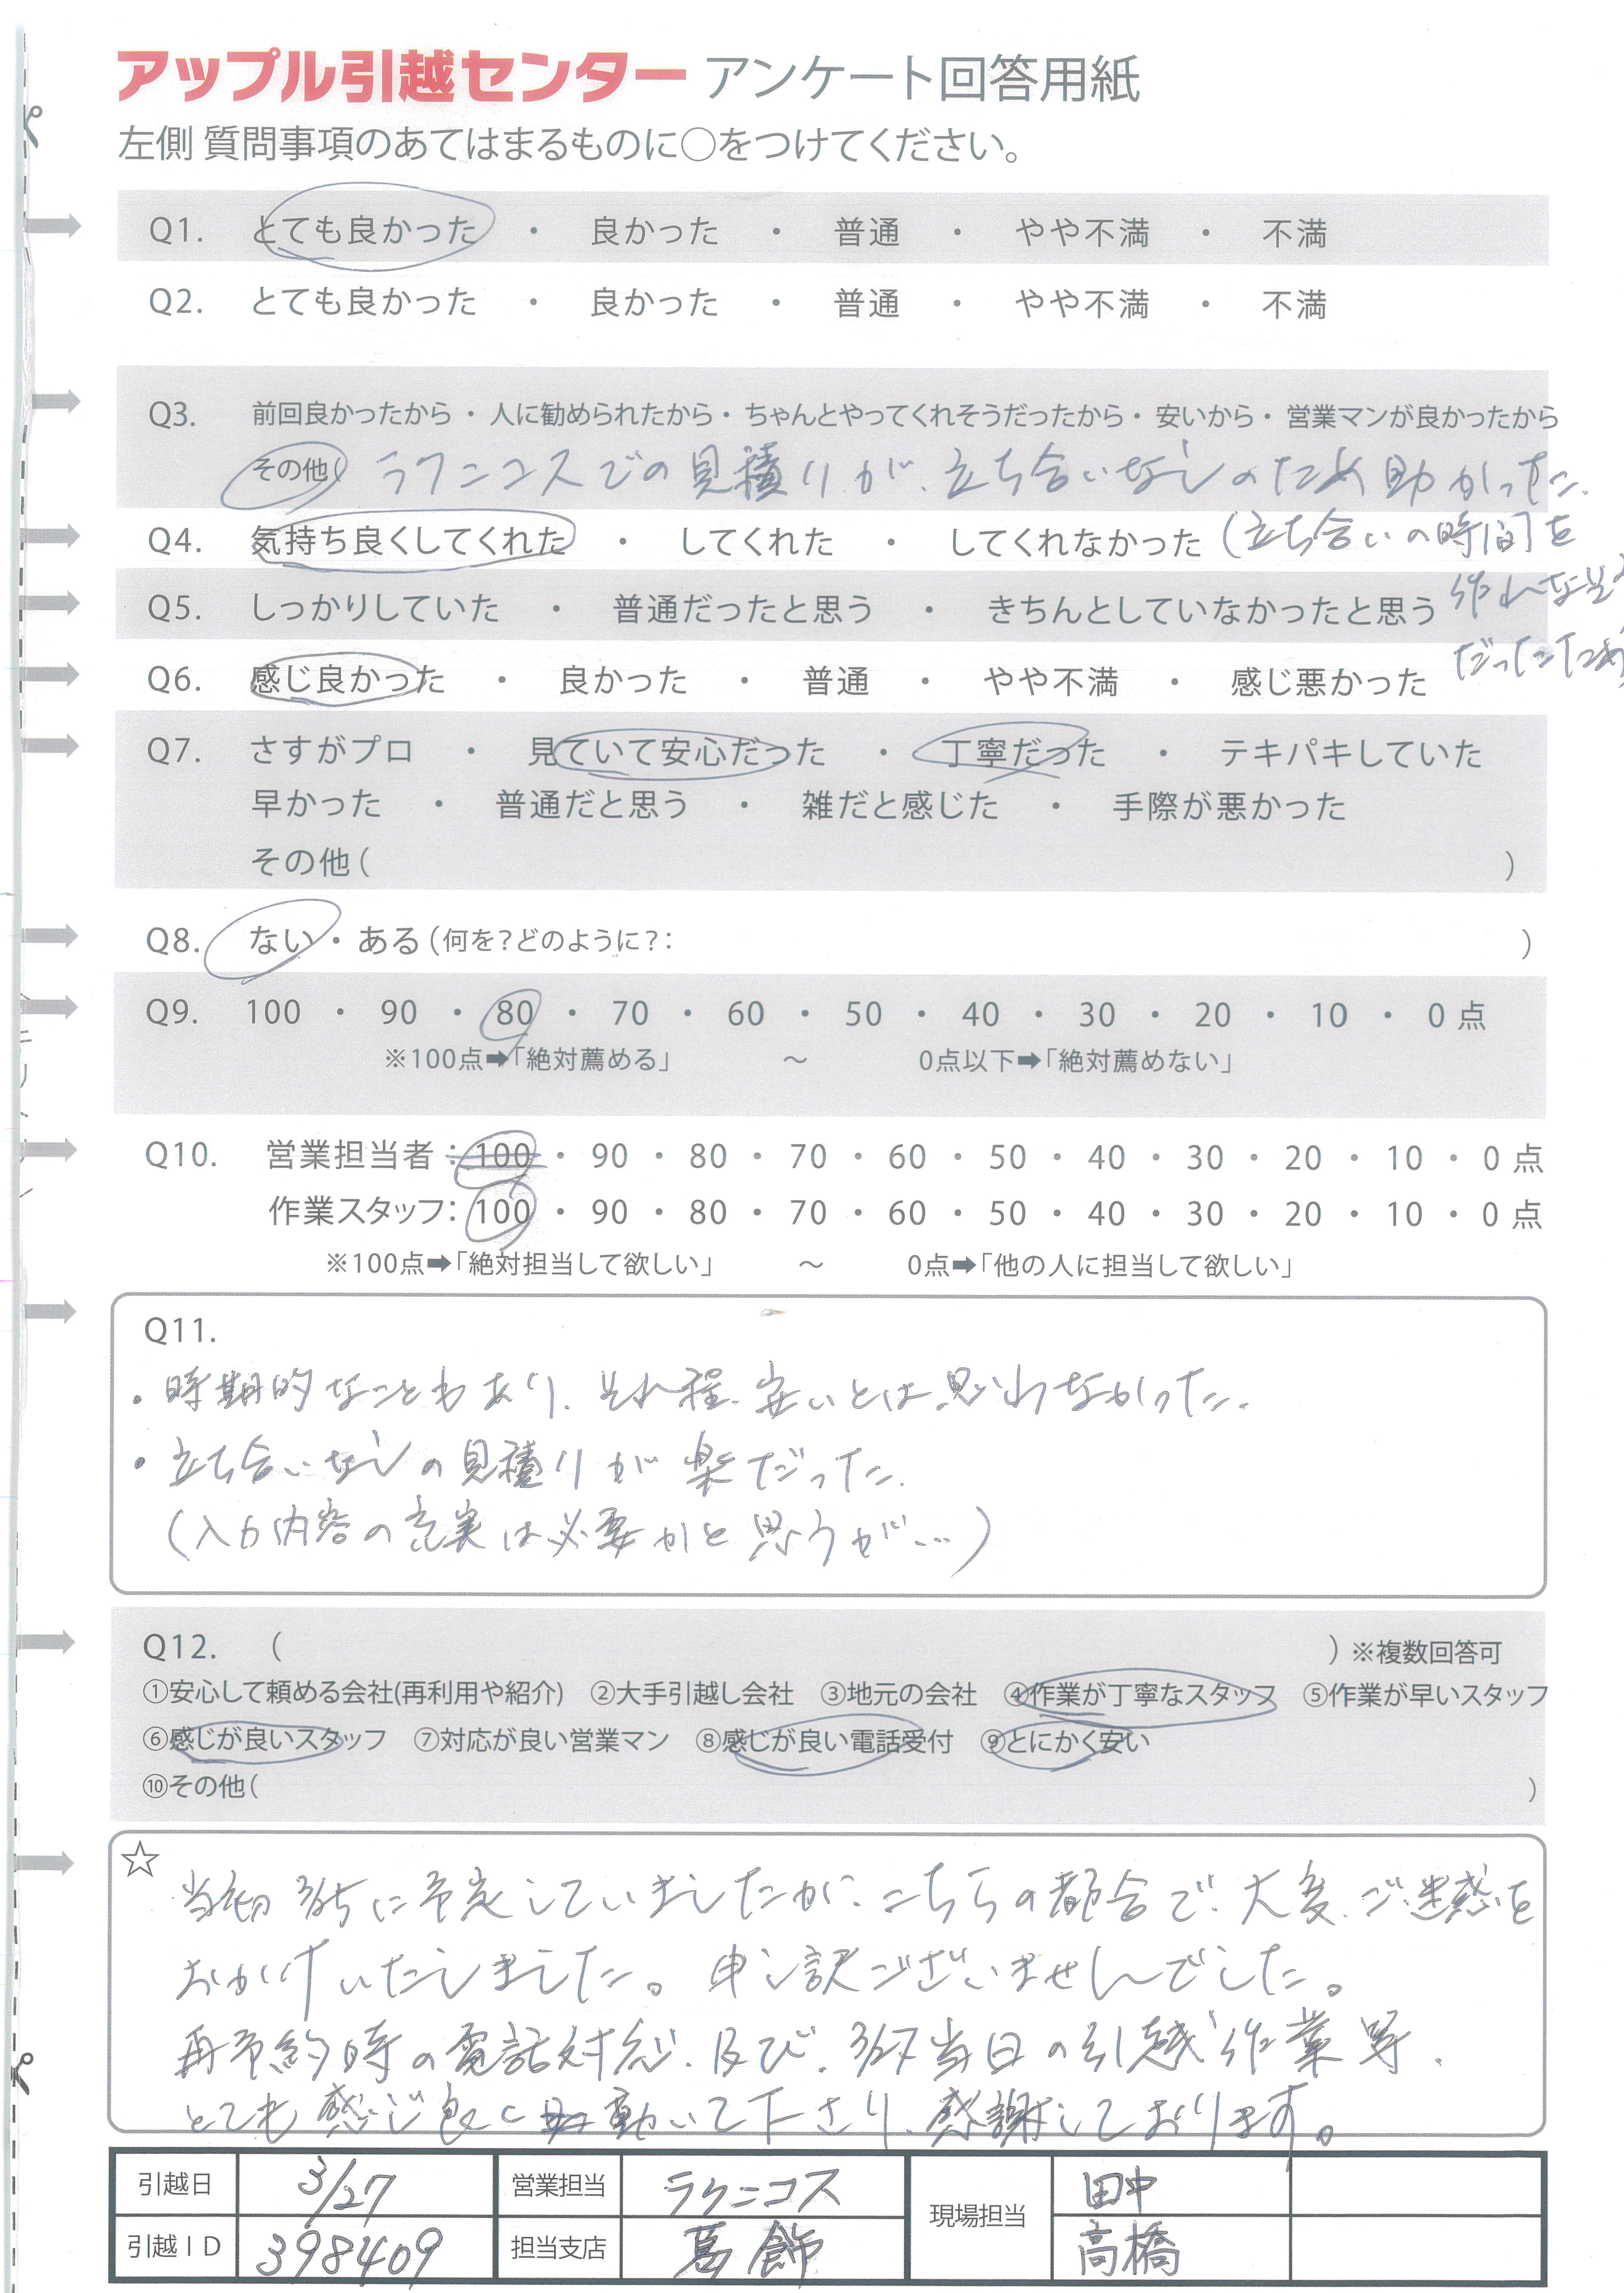 アップル引越センター アンケート回答用紙
左側 質問事項のあてはまるものに○をつけてください。
Q1. とても良かった ・ 良かった ・ 普通 ・ やや不満 ・ 不満
Q2. とても良かった ・ 良かった ・ 普通 ・ やや不満 ・ 不満
Q3. 前回良かったから・ 人に勧められたから・ ちゃんとやってくれそうだったから・ 安いから・ 営業マンが良かったから
その他( ラクニコスでの見積りが、立ち合いなしのため助かった。
Q4. 気持ち良くしてくれた ・ してくれた ・ してくれなかった (立ち合いの時間を
作れなそう
Q5. しっかりしていた ・ 普通だったと思う ・ きちんとしていなかったと思う
だったため)
Q6. 感じ良かった ・ 良かった ・ 普通 ・ やや不満 ・ 感じ悪かった
Q7. さすがプロ ・ 見ていて安心だった ・ 丁寧だった ・ テキパキしていた
早かった ・ 普通だと思う ・ 雑だと感じた ・ 手際が悪かった
その他( )
Q8. ない・ある(何を?どのように?: )
Q9. 100 ・ 90 ・ 80 ・ 70 ・ 60 ・ 50 ・ 40 ・ 30 ・ 20 ・ 10 ・ 0 点
※100点➡「絶対薦める」 ～ 0点以下➡「絶対薦めない」
Q10. 営業担当者: 100 ・ 90 ・ 80 ・ 70 ・ 60 ・ 50 ・ 40 ・ 30 ・ 20 ・ 10 ・ 0 点
作業スタッフ: 100 ・ 90 ・ 80 ・ 70 ・ 60 ・ 50 ・ 40 ・ 30 ・ 20 ・ 10 ・ 0 点
※100点➡「絶対担当して欲しい」 ～ 0点➡「他の人に担当して欲しい」
Q11.
・時期的なこともあり、それ程、安いとは思わなかった。
・立ち合いなしの見積りが楽だった。
(入力内容の充実は必要かと思うが…)
Q12. ( ) ※複数回答可
①安心して頼める会社(再利用や紹介) ②大手引越し会社 ③地元の会社 ④作業が丁寧なスタッフ ⑤作業が早いスタッフ
⑥感じが良いスタッフ ⑦対応が良い営業マン ⑧感じが良い電話受付 ⑨とにかく安い
⑩その他( )
☆
当初 3/25に予定していましたが、こちらの都合で、大変、ご迷惑を
おかけいたしました。申し訳ございませんでした。
再予約時の電話対応、及び、3/27当日の引越作業等、
とても感じ良く動いて下さり、感謝しております。
引越日 3/27 営業担当 ラクニコス 現場担当 田中
引越ID 398409 担当支店 葛飾 高橋